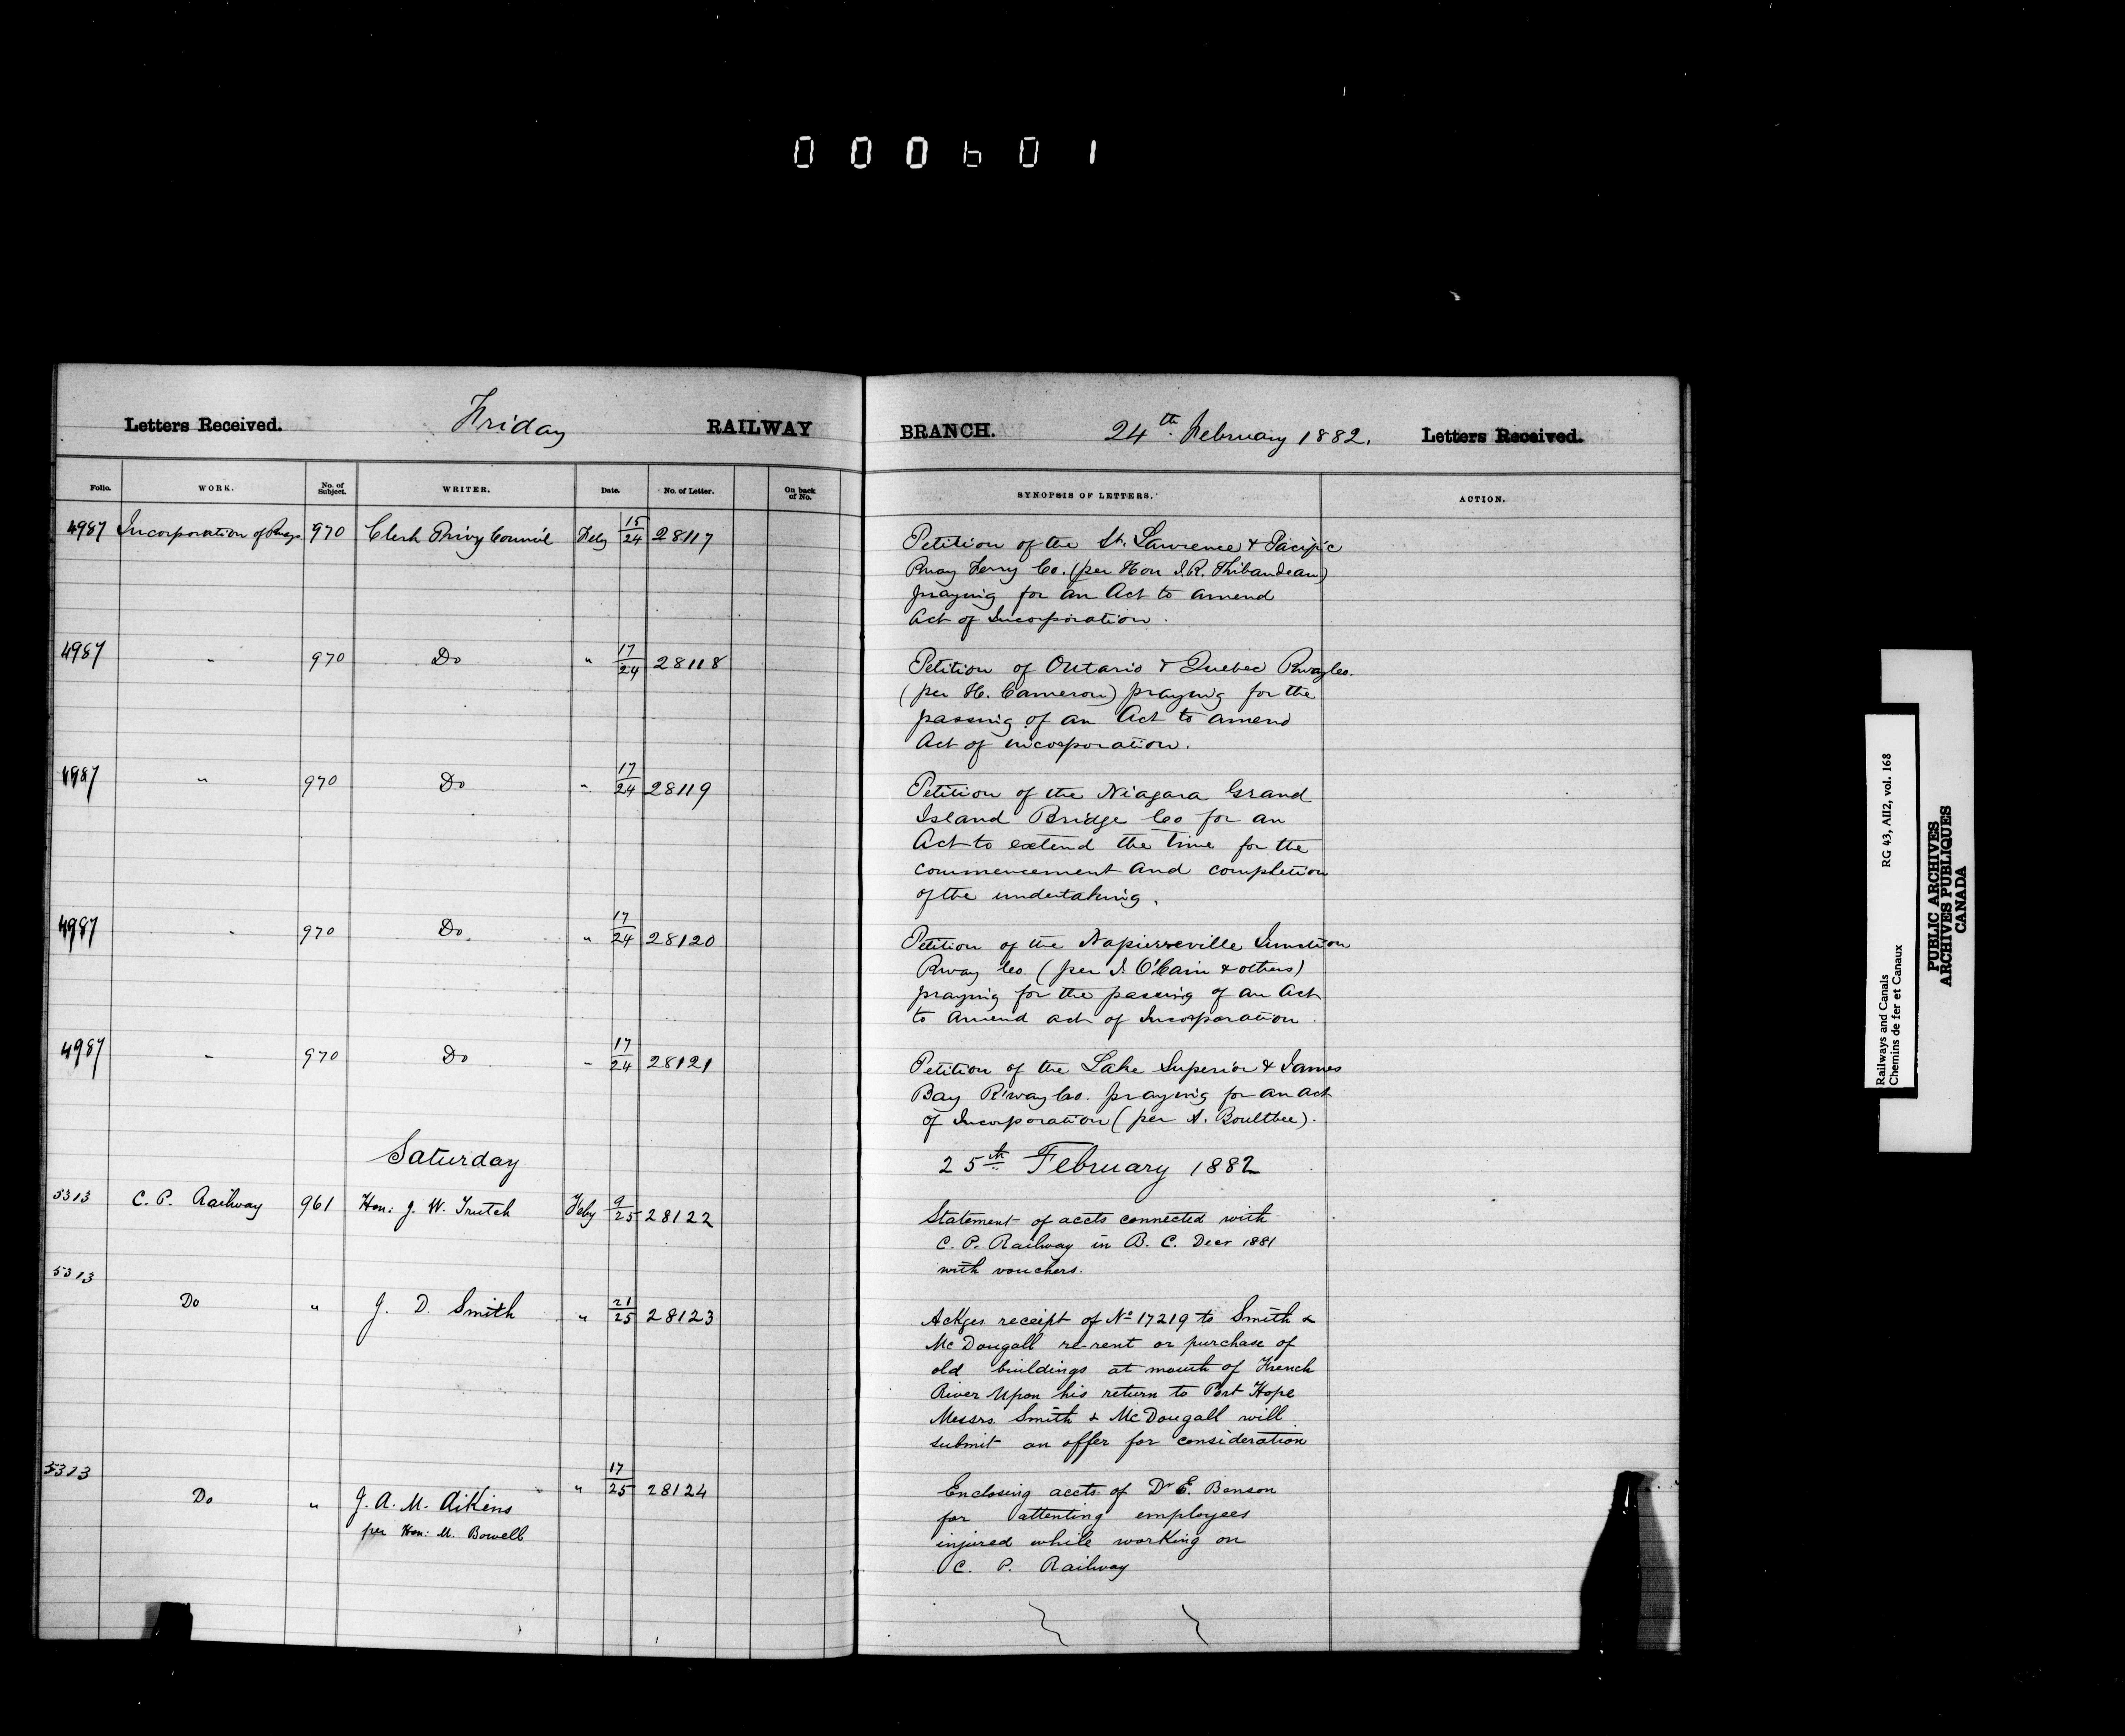 000601
Letters Received. Friday RAILWAY BRANCH. 24th February 1882. Letters Received.
Folio. WORK. No. of Subject. WRITER. Date. No. of Letter. On back of No. SYNOPSIS OF LETTERS. ACTION.
4987 Incorporation of Rways 970 Clerk Privy Council Feby 15/24 28117
Petition of the St. Lawrence & Pacific
Rway Ferry Co. (per Hon I.R. Thibaudeau)
praying for an Act to amend
Act of Incorporation.
4987 " 970 Do " 17/24 28118
Petition of Ontario & Quebec Rway Co.
(per H. Cameron) praying for the
passing of an Act to amend
Act of incorporation.
4987 " 970 Do " 17/24 28119
Petition of the Niagara Grand
Island Bridge Co for an
Act to extend the time for the
commencement and completion
of the undertaking.
4987 " 970 Do. " 17/24 28120
Petition of the Napierreville Junction
Rway Co. (per J. O'Cain & others)
praying for the passing of an Act
to amend act of Incorporation.
4987 " 970 Do " 17/24 28121
Petition of the Lake Superior & James
Bay R'way Co. praying for an act
of Incorporation (per A. Boultbee).
Saturday 25th February 1882
5313 C. P. Railway 961 Hon: J. W. Trutch Feby 9/25 28122
Statement of accts connected with
C. P. Railway in B. C. Decr 1881
with vouchers.
5313 Do " J. D. Smith " 21/25 28123
Ackges receipt of No 17219 to Smith &
McDougall re-rent or purchase of
old buildings at mouth of French
River Upon his return to Port Hope
Messrs. Smith & McDougall will
submit an offer for consideration
5313 Do " J. A. M. Aikins " 17/25 28124
per Hon: M. Bowell
Enclosing accts. of Dr E. Benson
for attenting employees
injured while working on
C. P. Railway
Railways and Canals RG 43, AII2, vol. 168
Chemins de fer et Canaux
PUBLIC ARCHIVES
ARCHIVES PUBLIQUES
CANADA